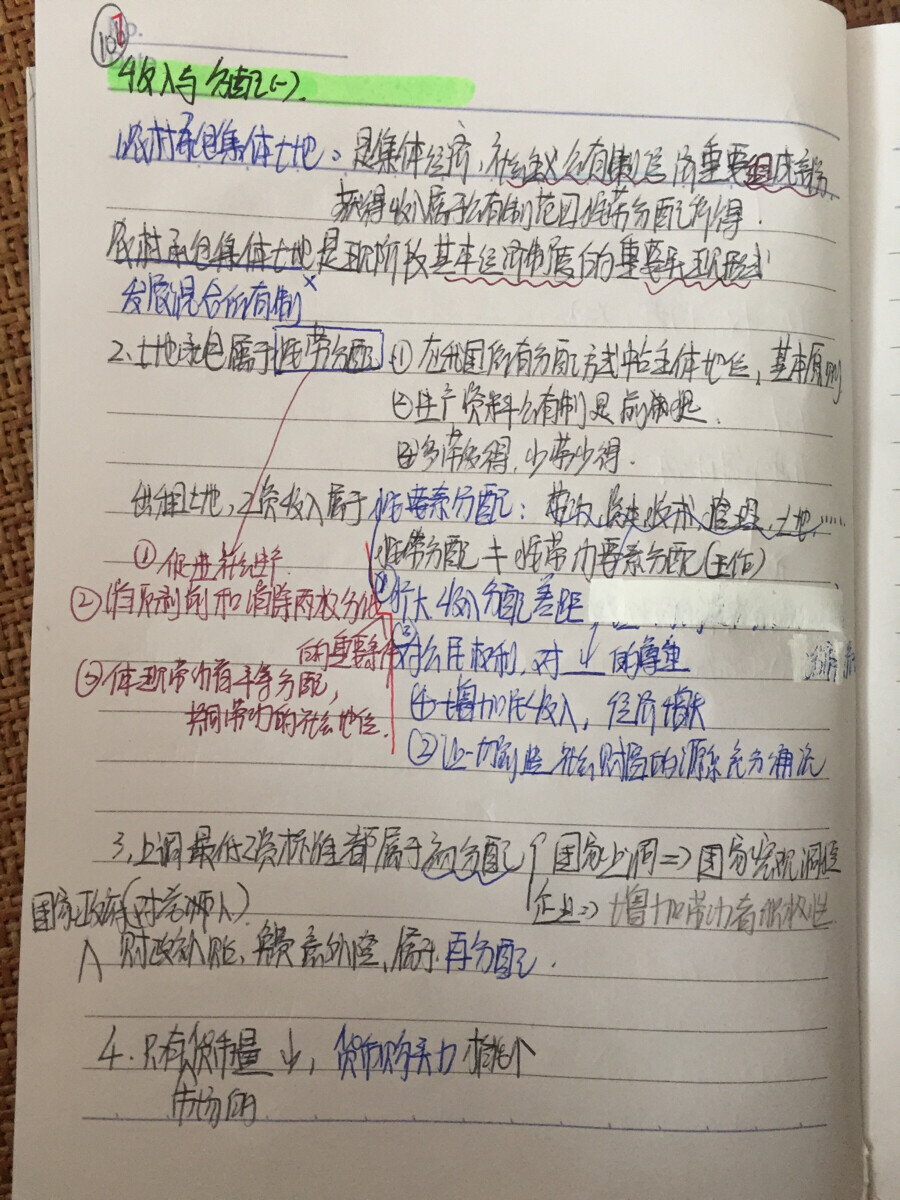 No.
收入与分配(一).
1.农村承包集体土地: 是集体经济、社会主义公有制经济重要组成部分,
获得收入属于公有制范围按劳分配所得.
农村承包集体土地是现阶段基本经济制度的重要实现形式
发展混合所有制 ×
2.土地承包属于按劳分配 ①在我国所有分配方式中占主体地位, 基本原则
②生产资料公有制是前提.
③多劳多得,少劳少得.
出租土地, 工资收入属于按要素分配: 劳动、资本、技术、管理、土地……
按劳分配 ≠ 按劳动要素分配
①促进社会生产
②消灭剥削和消除两极分化
的重要条件
③体现劳动者平等分配,
共同劳动的社会地位.
①扩大收入分配差距
③对公民权利, 对↓的尊重
④增加收入, 经济增长
②让一切创造社会财富的源泉充分涌流
3.上调最低工资标准都属于初分配 国家上调⇒国家宏观调控
企业⇒增加劳动者积极性
国家政府(对老师人)
财政补贴, 属于再分配.
4.只有货币量↓, 货币购买力才能个
市场的